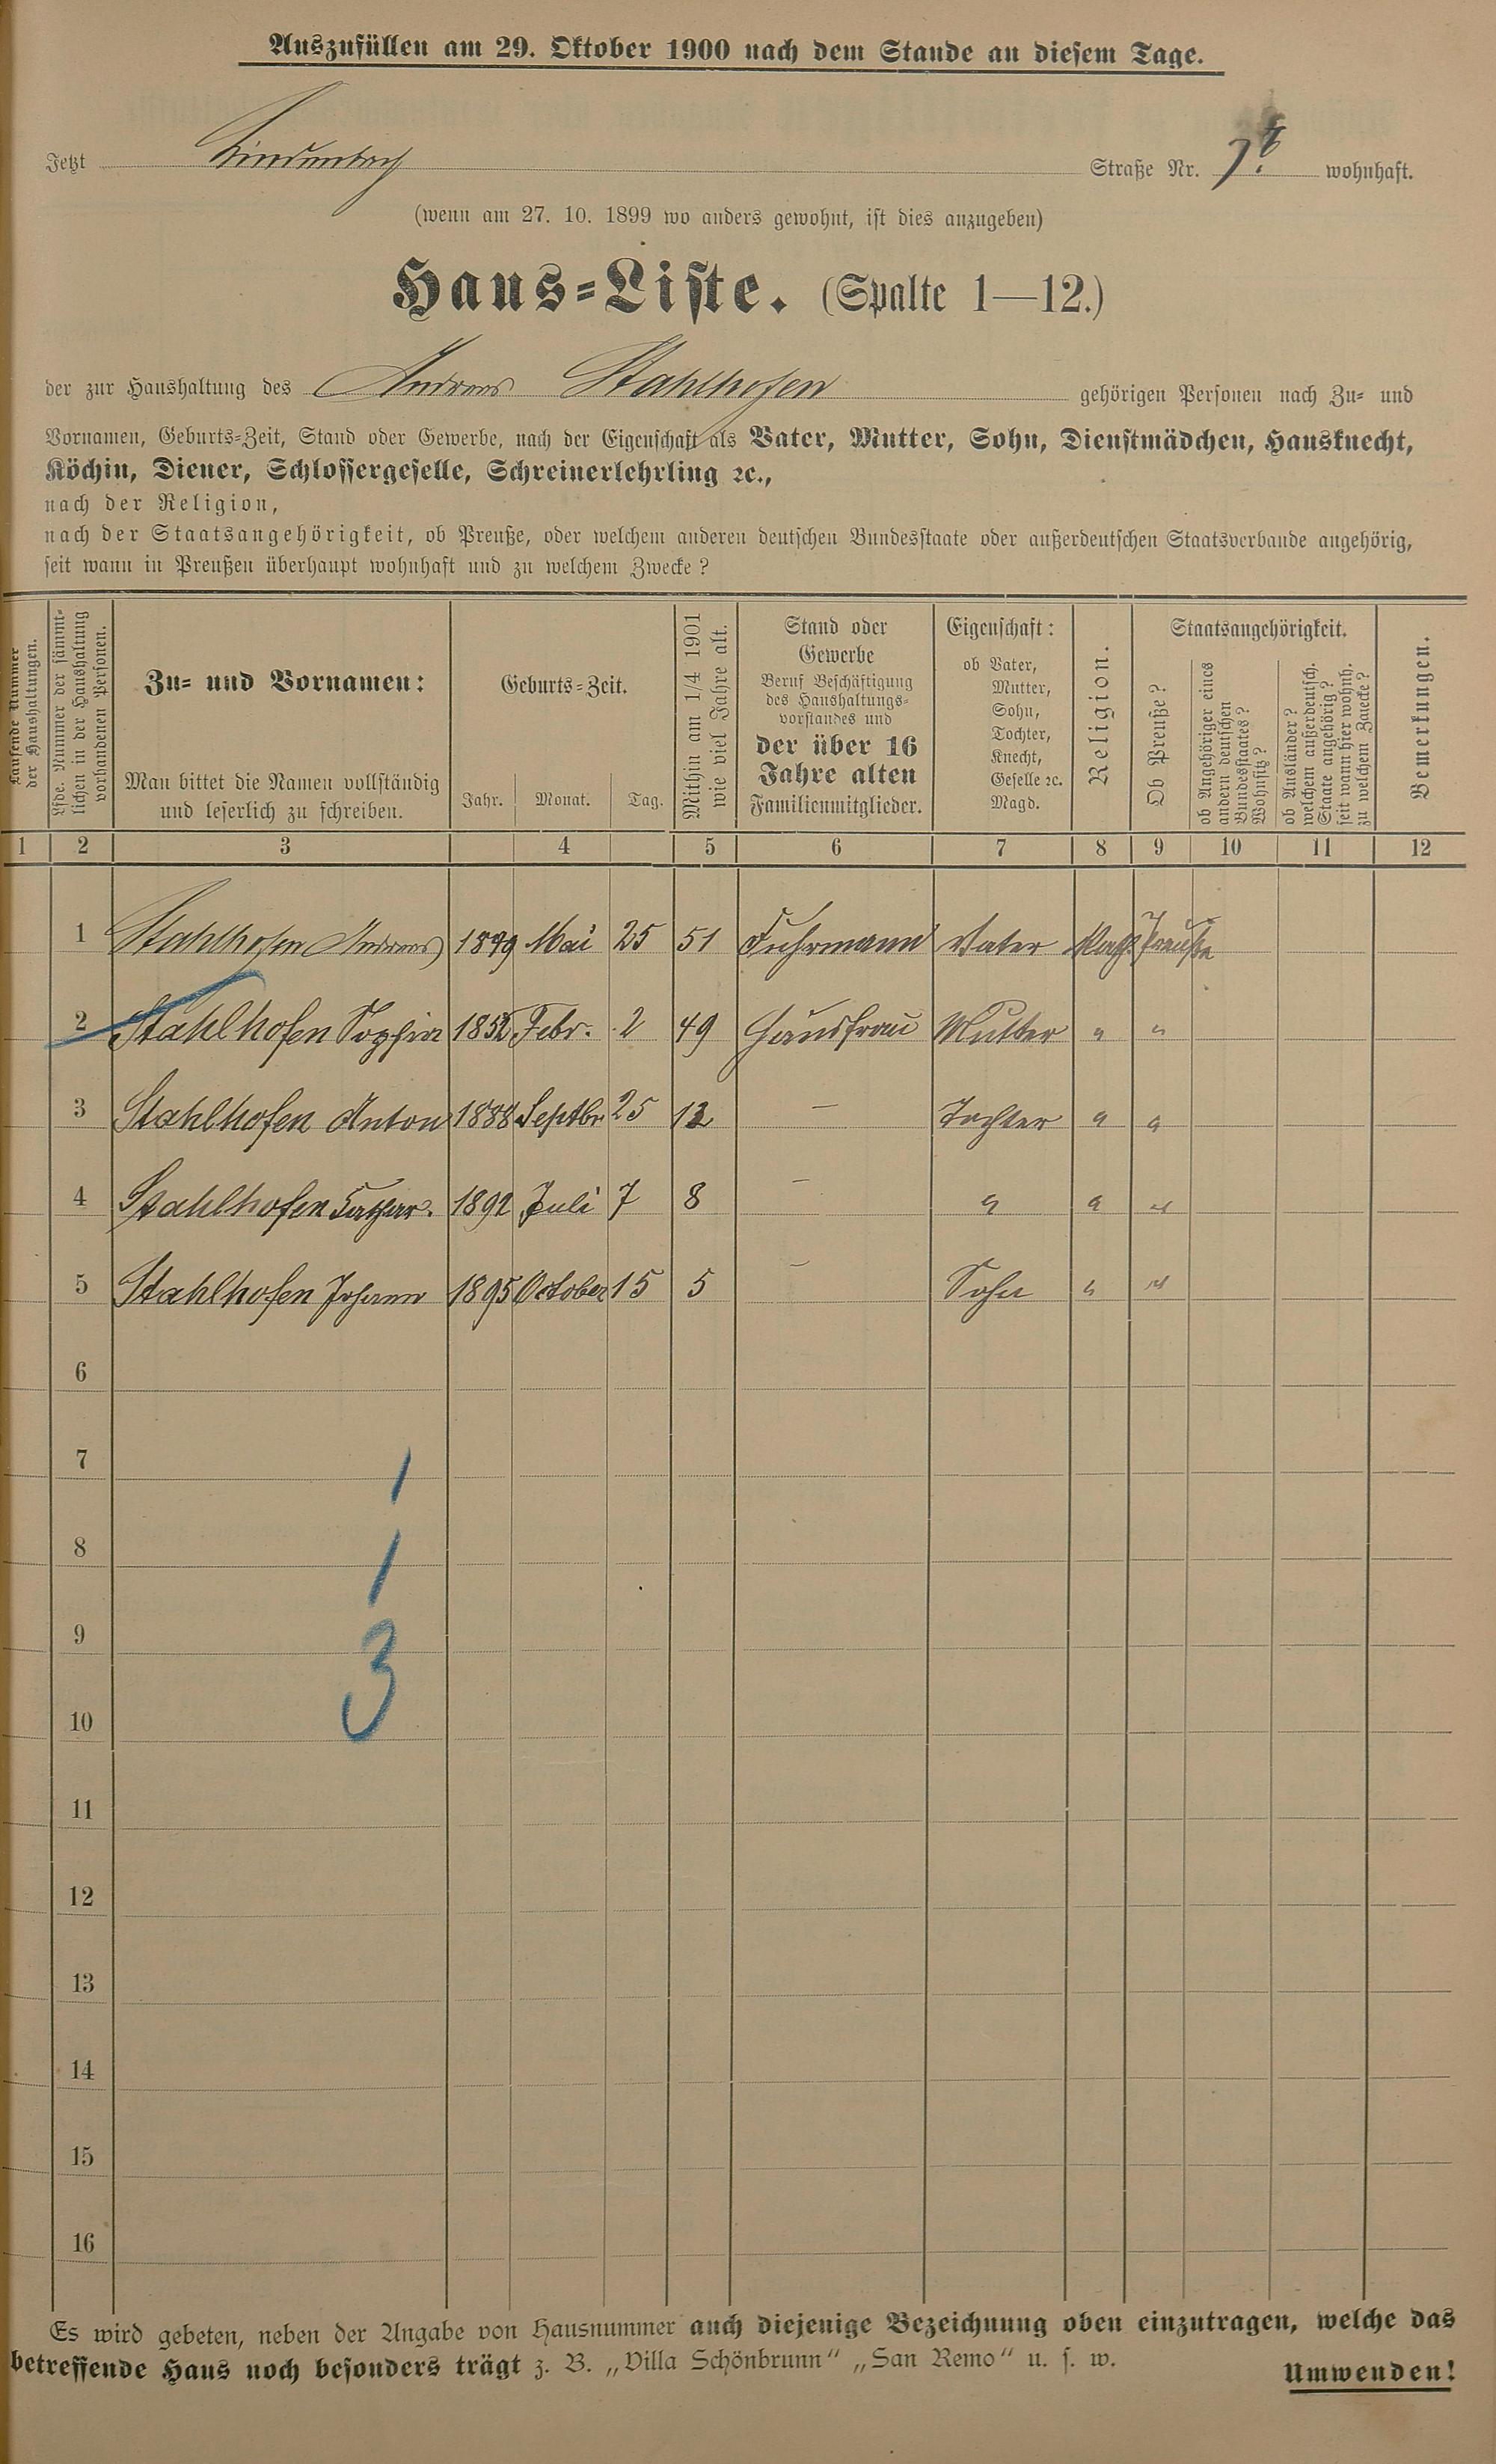 Auszufüllen am 29. Oktober 1900 nach dem Stande an diesem Tage.
Jetzt Lindenbach Straße Nr. 7 wohnhaft.
(wenn am 27. 10. 1899 wo anders gewohnt, ist dies anzugeben)
Haus-Liste. (Spalte 1—12.)
der zur Haushaltung des Andreas Stahlhofen gehörigen Personen nach Zu- und
Vornamen, Geburts-Zeit, Stand oder Gewerbe, nach der Eigenschaft als Vater, Mutter, Sohn, Dienstmädchen, Hausknecht,
Köchin, Diener, Schlossergeselle, Schreinerlehrling ꝛc.,
nach der Religion,
nach der Staatsangehörigkeit, ob Preuße, oder welchem anderen deutschen Bundesstaate oder außerdeutschen Staatsverbande angehörig,
seit wann in Preußen überhaupt wohnhaft und zu welchem Zwecke?
Laufende Nummer
der Haushaltungen.
Lfde. Nummer der sämmt-
lichen in der Haushaltung
vorhandenen Personen.
Zu- und Vornamen:
Man bittet die Namen vollständig
und leserlich zu schreiben.
Geburts-Zeit.
Jahr. Monat. Tag.
Mithin am 1/4 1901
wie viel Jahre alt.
Stand oder
Gewerbe
Beruf Beschäftigung
des Haushaltungs-
vorstandes und
der über 16
Jahre alten
Familienmitglieder.
Eigenschaft:
ob Vater,
Mutter,
Sohn,
Tochter,
Knecht,
Geselle ꝛc.
Magd.
Religion.
Staatsangehörigkeit.
Ob Preuße?
ob Angehöriger eines
andern deutschen
Bundesstaates?
Wohnsitz?
ob Ausländer?
welchem außerdeutsch.
Staate angehörig?
seit wann hier wohnh.
zu welchem Zwecke?
Bemerkungen.
1 2 3 4 5 6 7 8 9 10 11 12
1 Stahlhofen Andreas 1849 Mai 25 51 Fuhrmann Vater Kath. Preuße
2 Stahlhofen Sophia 1852 Febr. 2 49 Hausfrau Mutter " "
3 Stahlhofen Anton 1888 Septbr 25 12 — Tochter " "
4 Stahlhofen Kathar. 1892 Juli 7 8 — " " "
5 Stahlhofen Johann 1895 October 15 5 — Sohn " "
6
7 1
8 1
9 3
10
11
12
13
14
15
16
Es wird gebeten, neben der Angabe von Hausnummer auch diejenige Bezeichnung oben einzutragen, welche das
betreffende Haus noch besonders trägt z. B. „Villa Schönbrunn“ „San Remo“ u. s. w.
Umwenden!